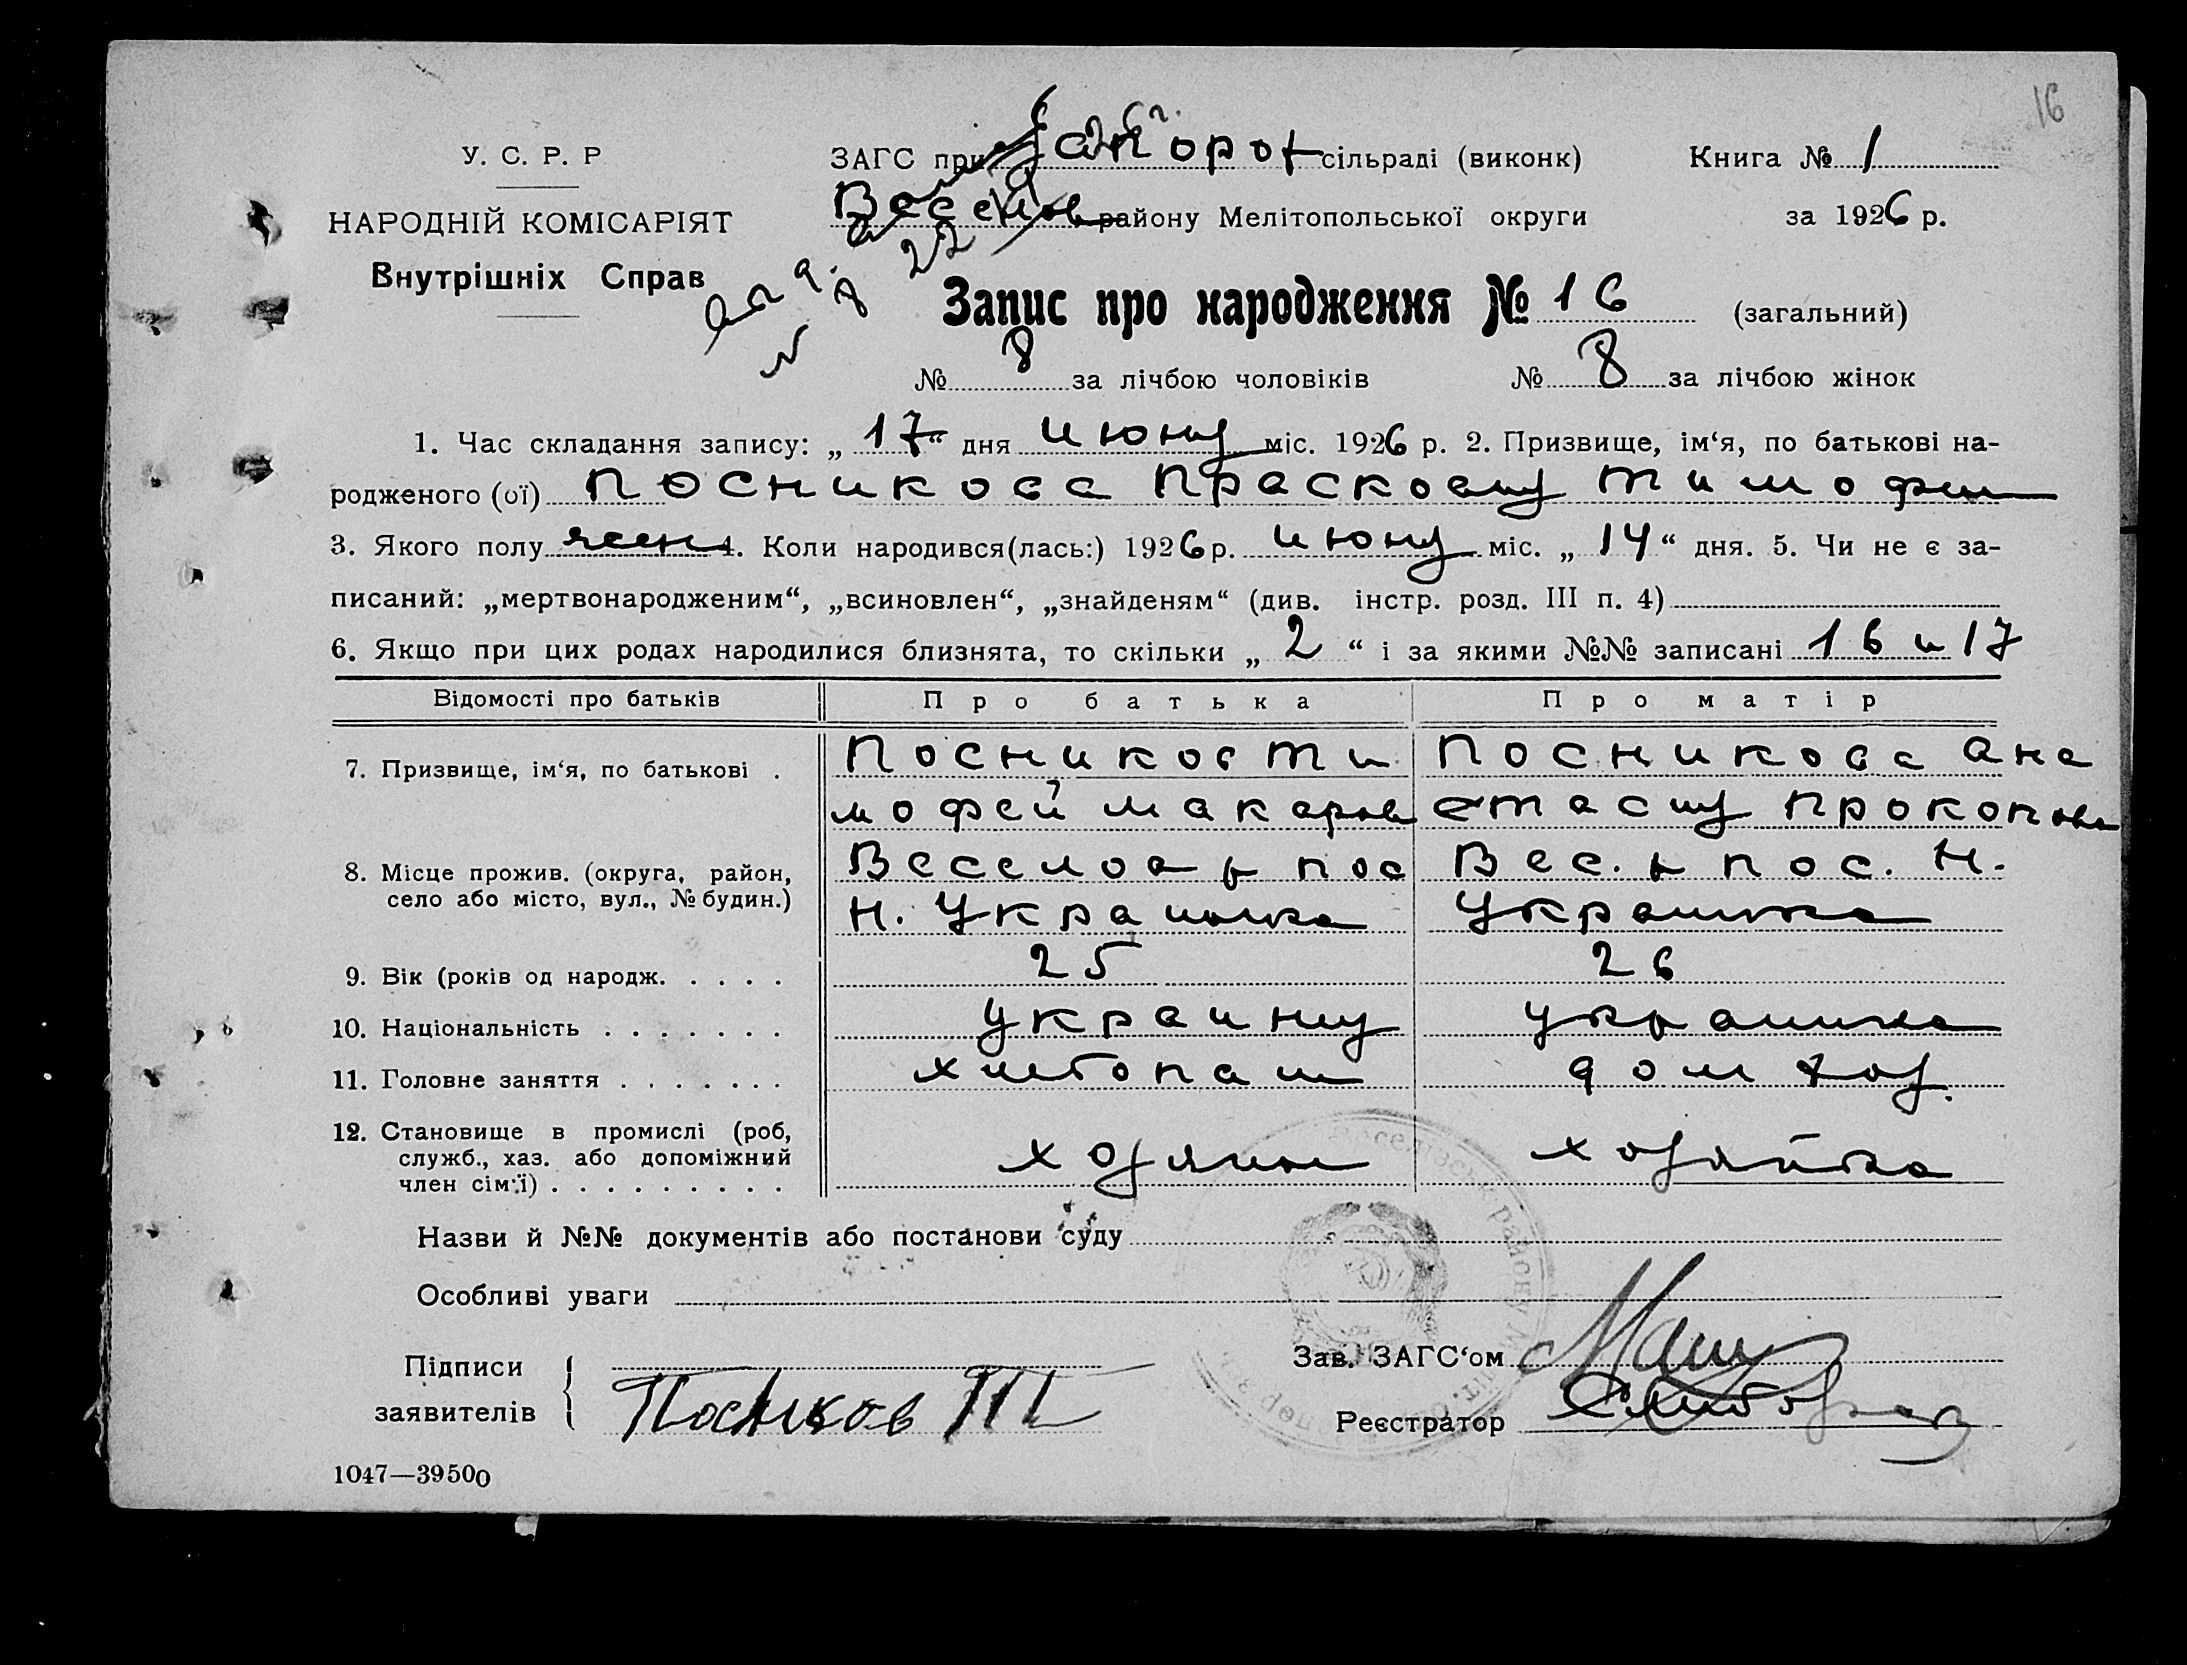 16
У. С. Р. Р
ЗАГС при Запорож сільраді (виконк)
Книга № 1
НАРОДНІЙ КОМІСАРІЯТ
Веселов району Мелітопольської округи
за 1926 р.
Внутрішніх Справ
Запис про народження № 16 (загальний)
№ 8 за лічбою чоловіків № 8 за лічбою жінок
1. Час складання запису: „ 17 “ дня июня міс. 1926 р. 2. Призвище, ім‘я, по батькові на-
родженого (ої) Посникова Прасковия Тимофеи
3. Якого полу жен 4. Коли народився(лась:) 1926 р. июня міс. „ 14 “ дня. 5. Чи не є за-
писаний: „мертвонародженим“, „всиновлен“, „знайденям“ (див. інстр. розд. III п. 4)
6. Якщо при цих родах народилися близнята, то скільки „ 2 “ і за якими №№ записані 16 и 17
Відомості про батьків Про батька Про матір
7. Призвище, ім‘я, по батькові . Посников Ти Посникова Ана
мофей Макаров стасия Прокопова
8. Місце прожив. (округа, район, Веселов р пос Вес. р пос. Н.
село або місто, вул., № будин.) Н. Украинка Украинка
9. Вік (років од народж. . . . . 25 26
10. Національність . . . . . . . украинц украинка
11. Головне заняття . . . . . . . хлебопаш дом хоз.
12. Становище в промислі (роб,
служб., хаз. або допоміжний хозяин хозяйка
член сім‘ї) . . . . . . . . .
Назви й №№ документів або постанови суду
Особливі уваги
Підписи
Зав. ЗАГС‘ом
заявителів Посников Т
Реєстратор
1047—39500